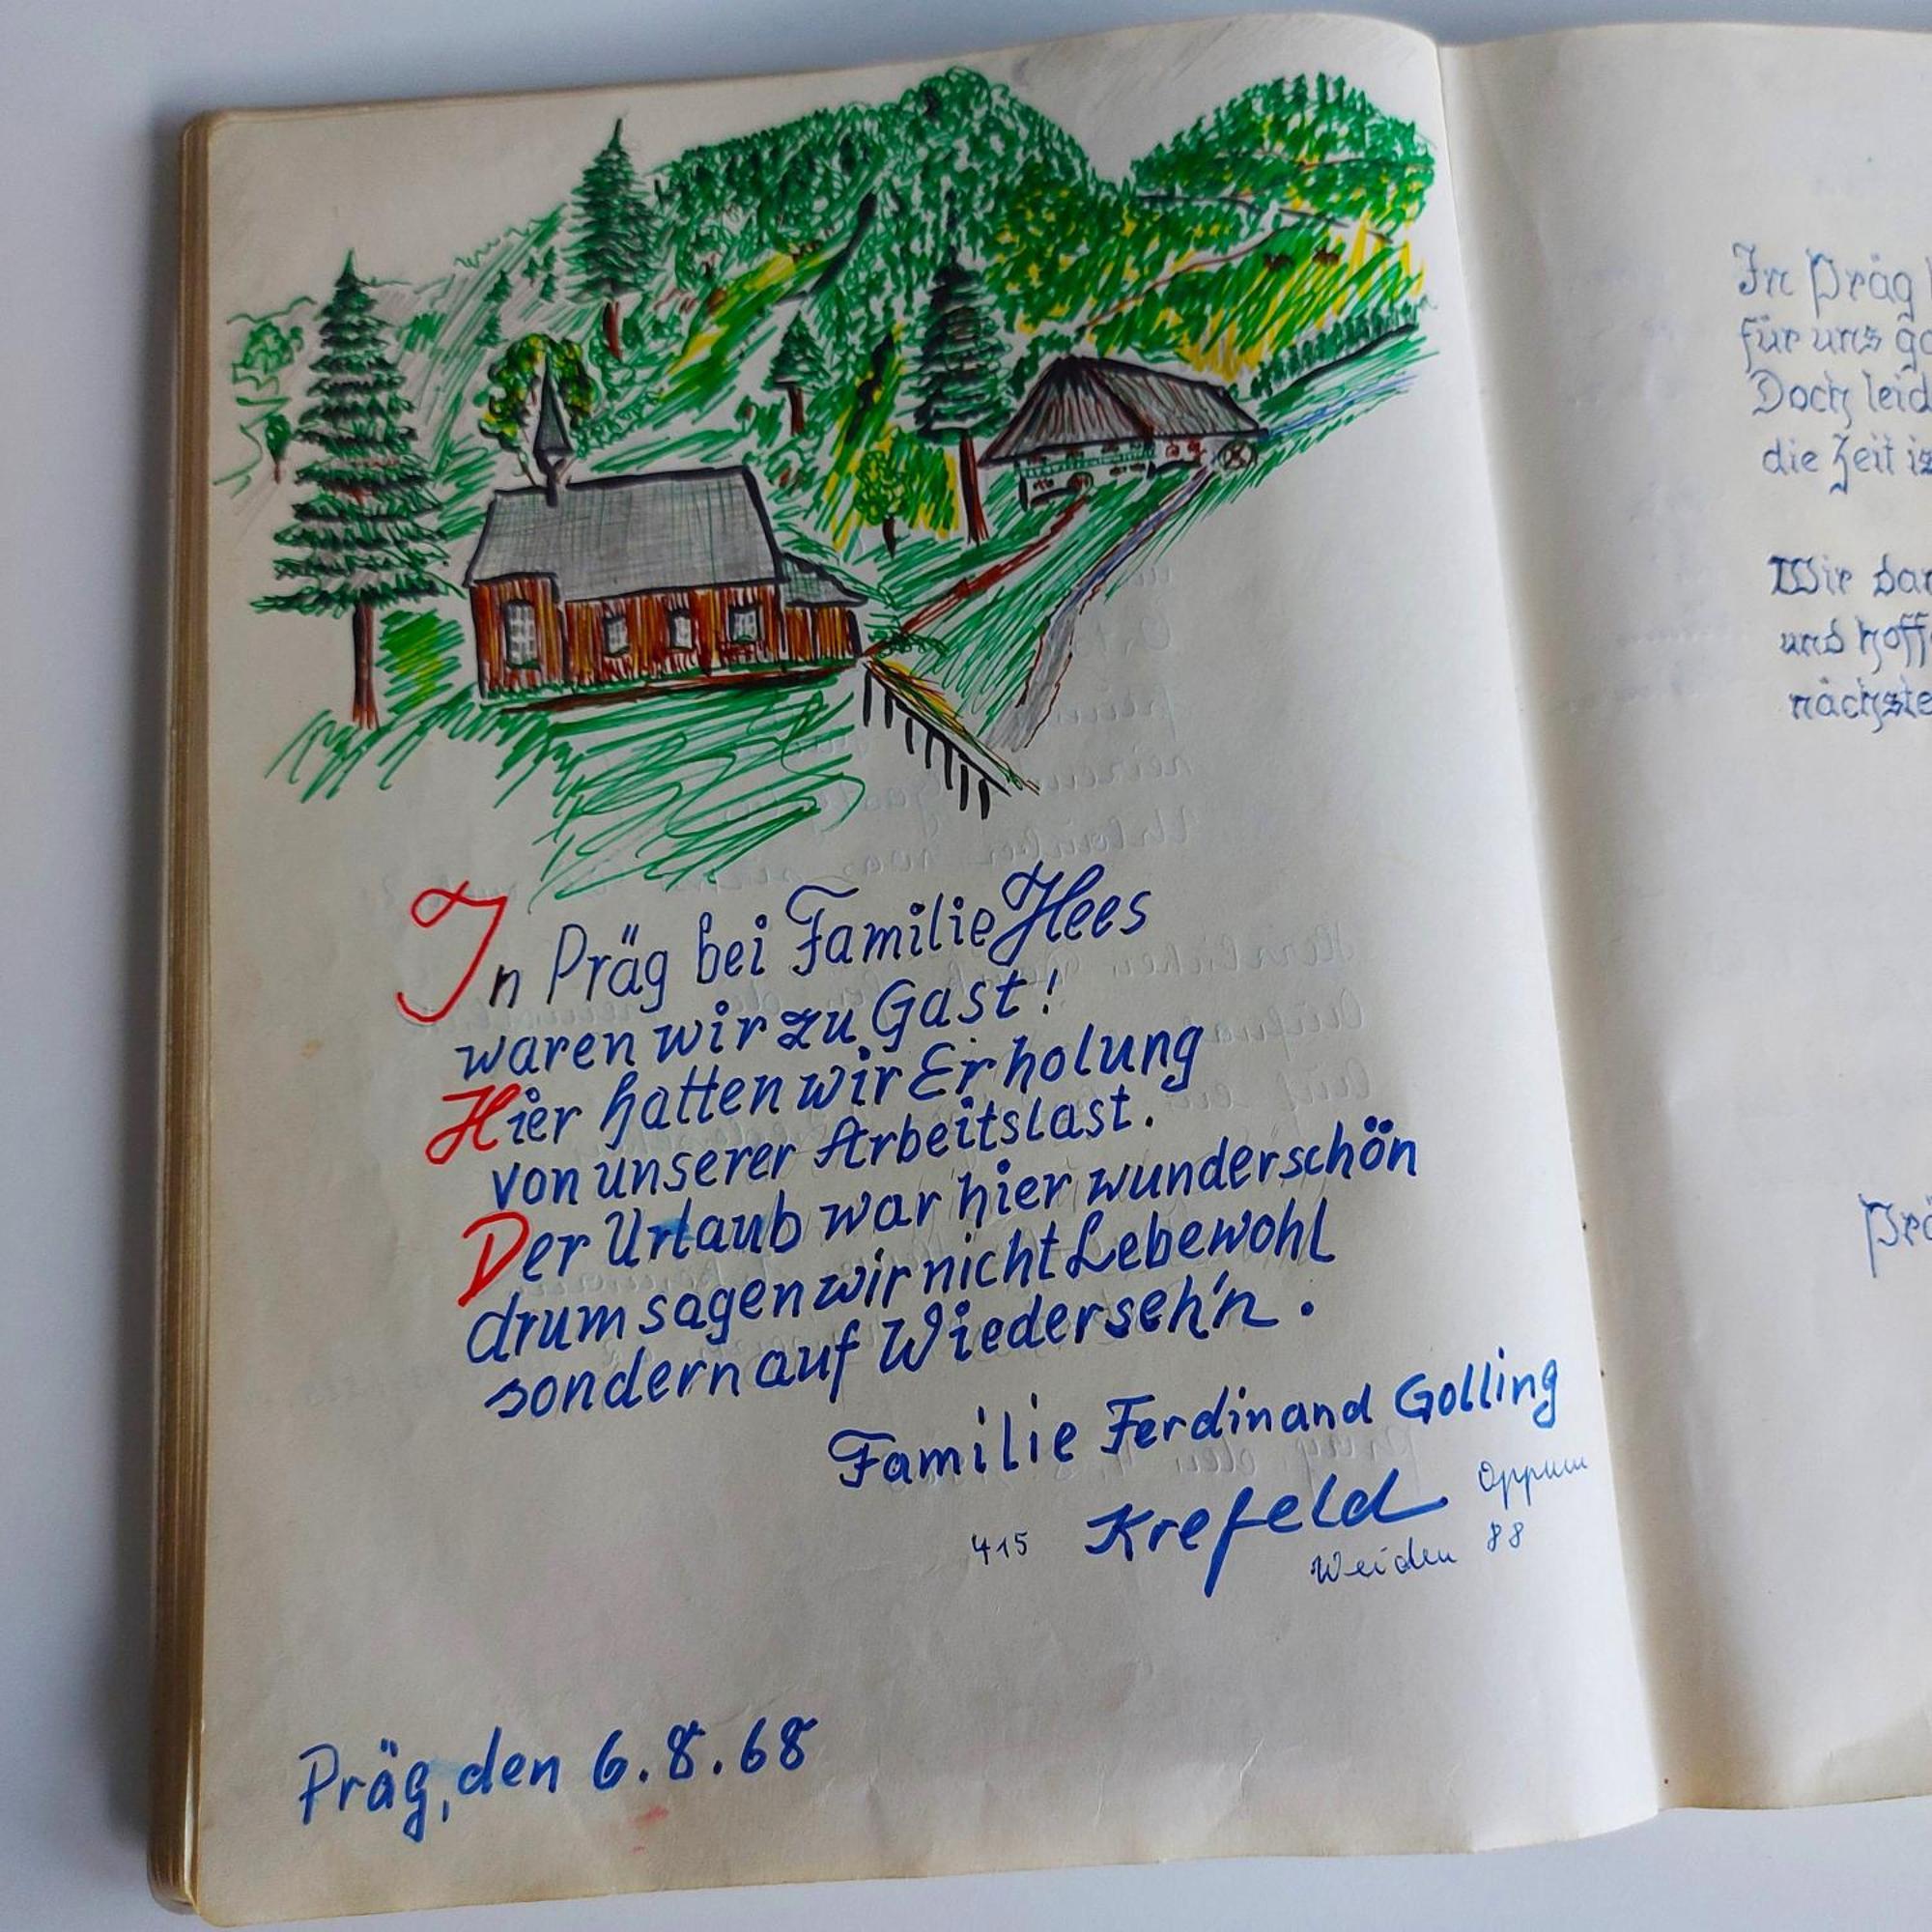 In Präg bei Familie Hees
waren wir zu Gast!
Hier hatten wir Erholung
von unserer Arbeitslast.
Der Urlaub war hier wunderschön
drum sagen wir nicht Lebewohl
sondern auf Wiederseh'n.
Familie Ferdinand Golling
415 Krefeld Oppum
Weiden 88
Präg, den 6.8.68
In Präg
für uns
Doch leid
die Zeit
Wir
und hoff
nächste